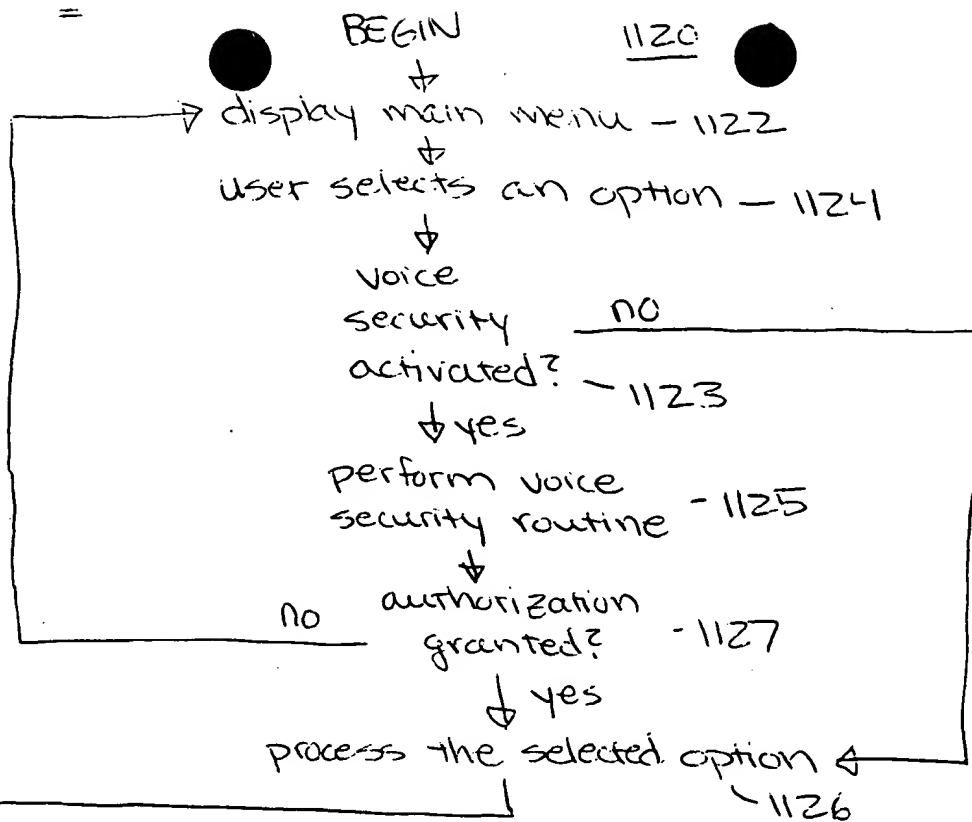 BEGIN 1120
display main menu - 1122
user selects an option - 1124
voice
security no
activated? - 1123
yes
perform voice
security routine - 1125
no authorization
granted? - 1127
yes
process the selected option
- 1126